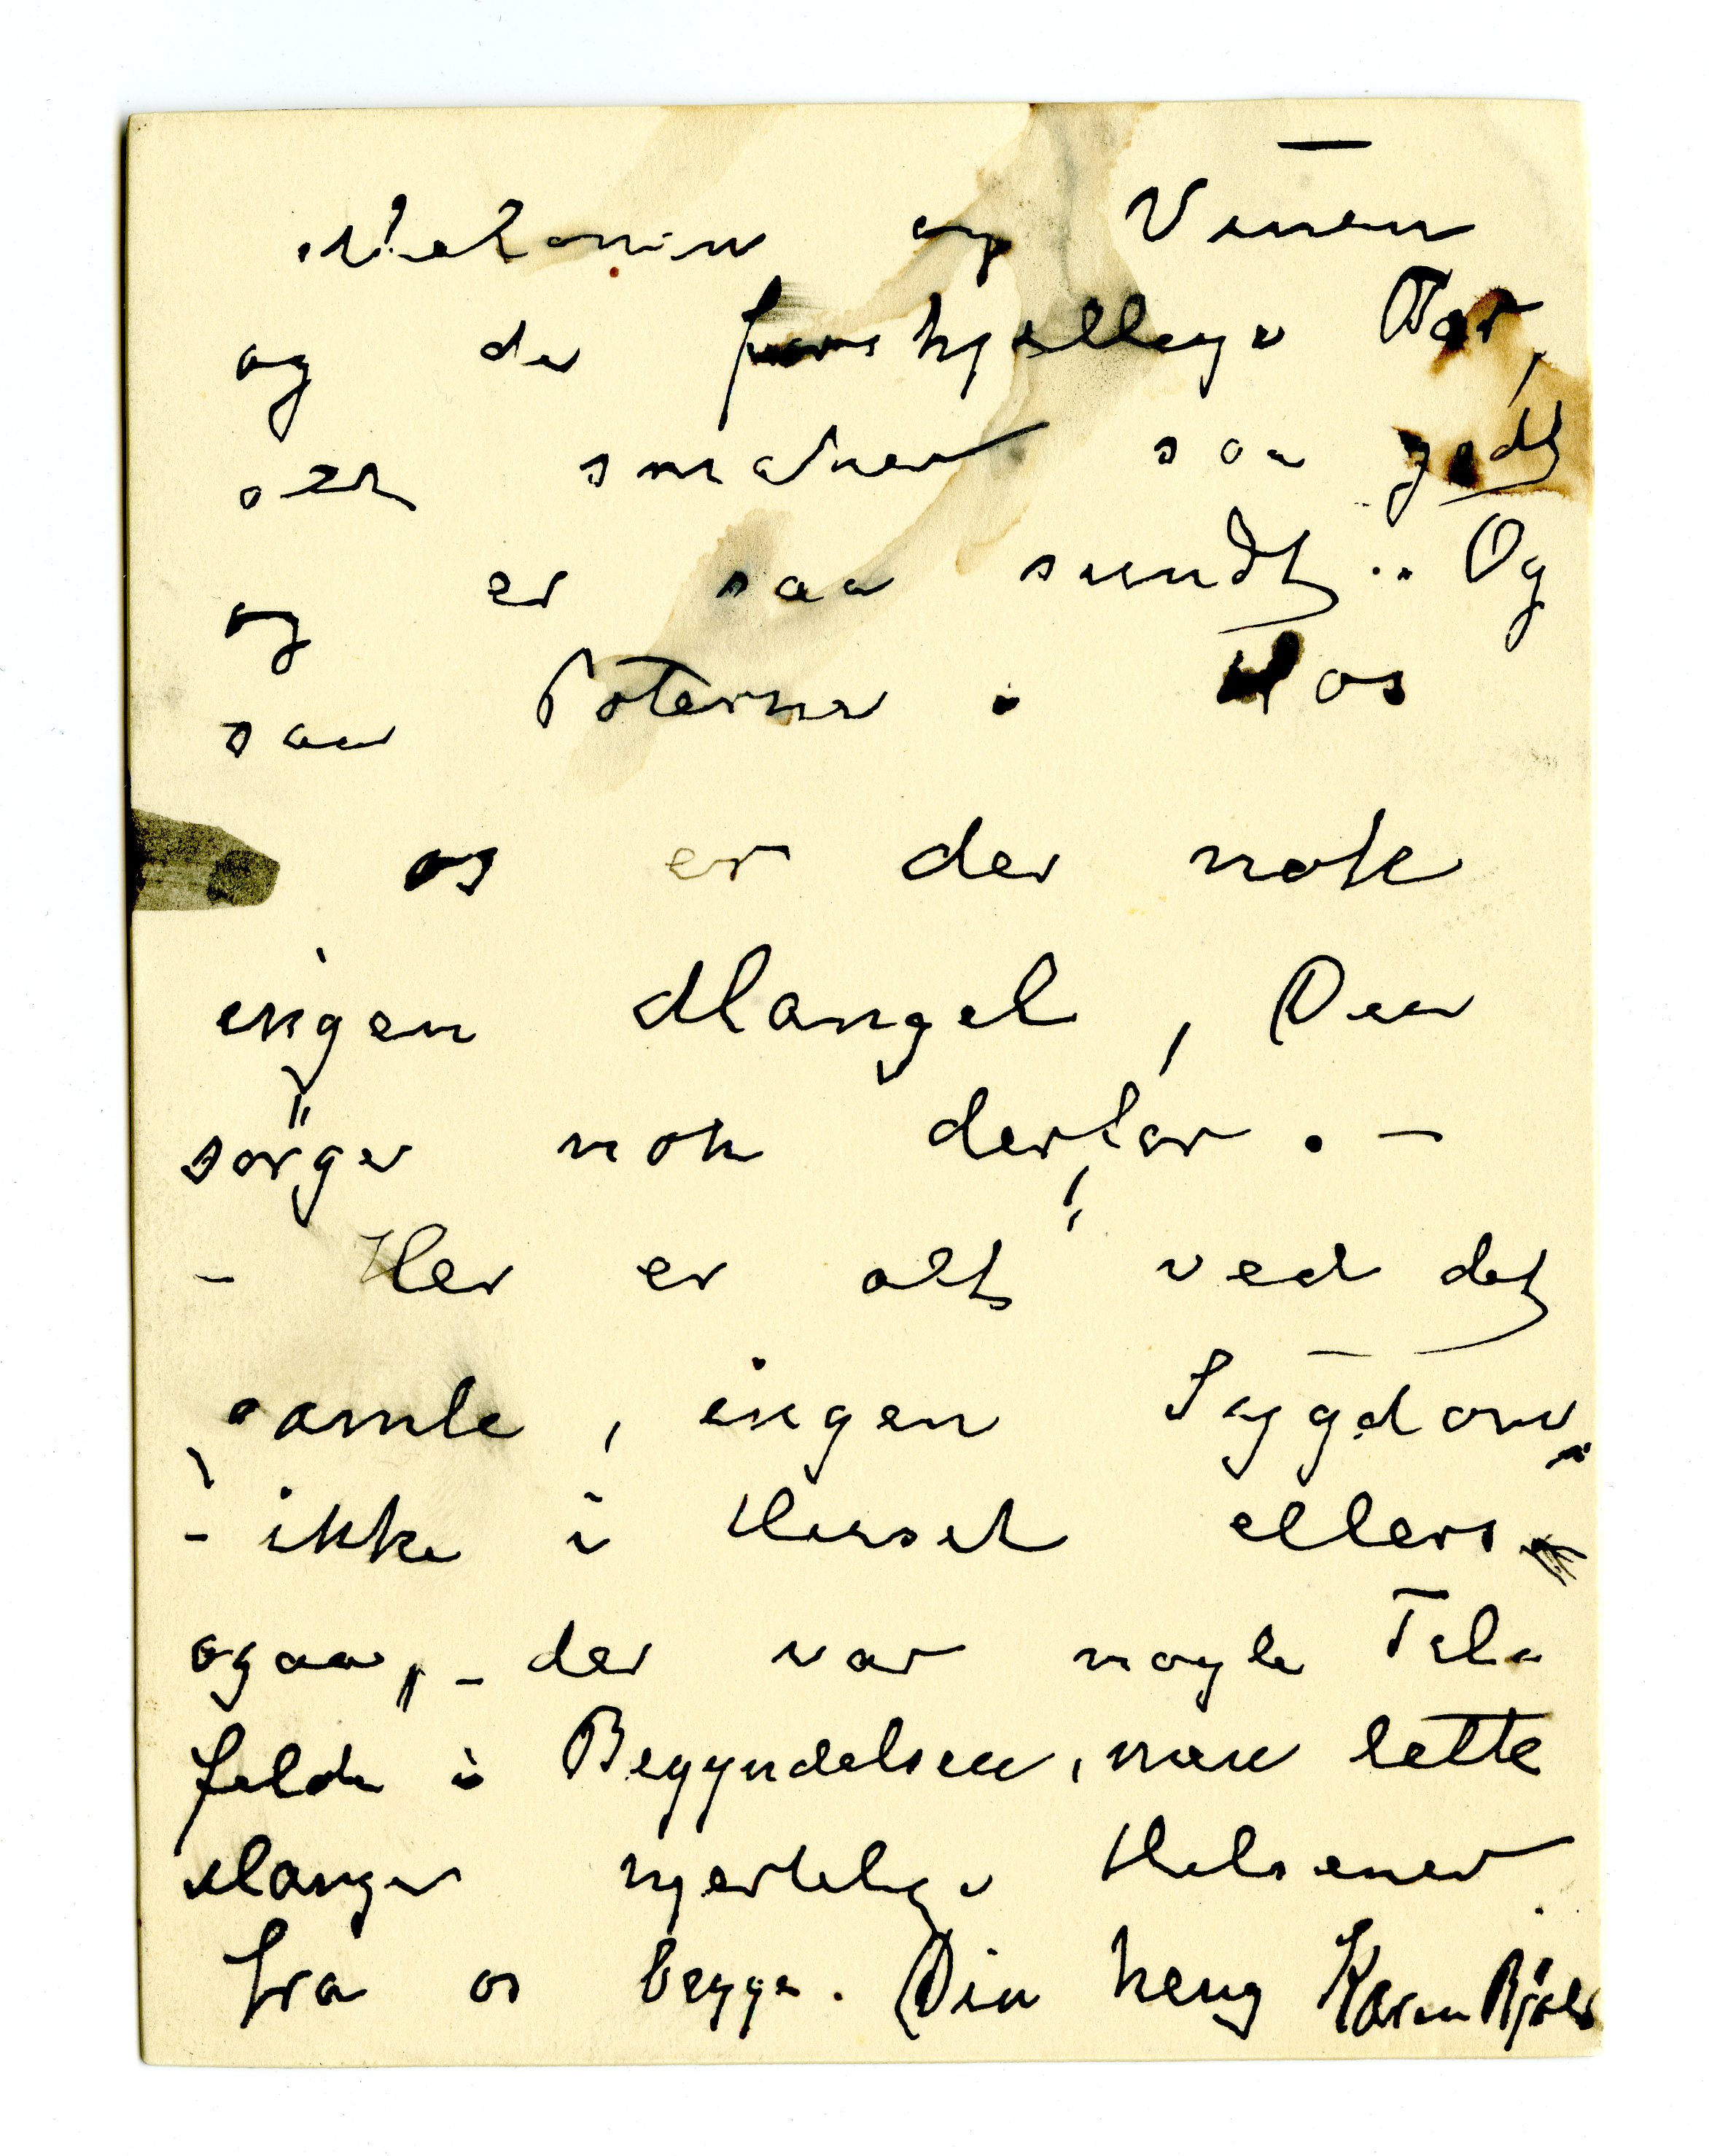 og Vinen
og de forskjellige Tør,
alt smaker saa godt
og er saa sundt.. Og
saa Poterne. Hos
os er der nok
ingen Mangel, Den
sörger nok derfor. -
- Her er alt ved det
samle, ingen Sygdom
- ikke i Huset ellers
ogaa, - der var nogle Tel-
felde i Begyndelsen, men lette
Mange hjertelige Helsener
fra os begge. Din heng Karen Bjöls